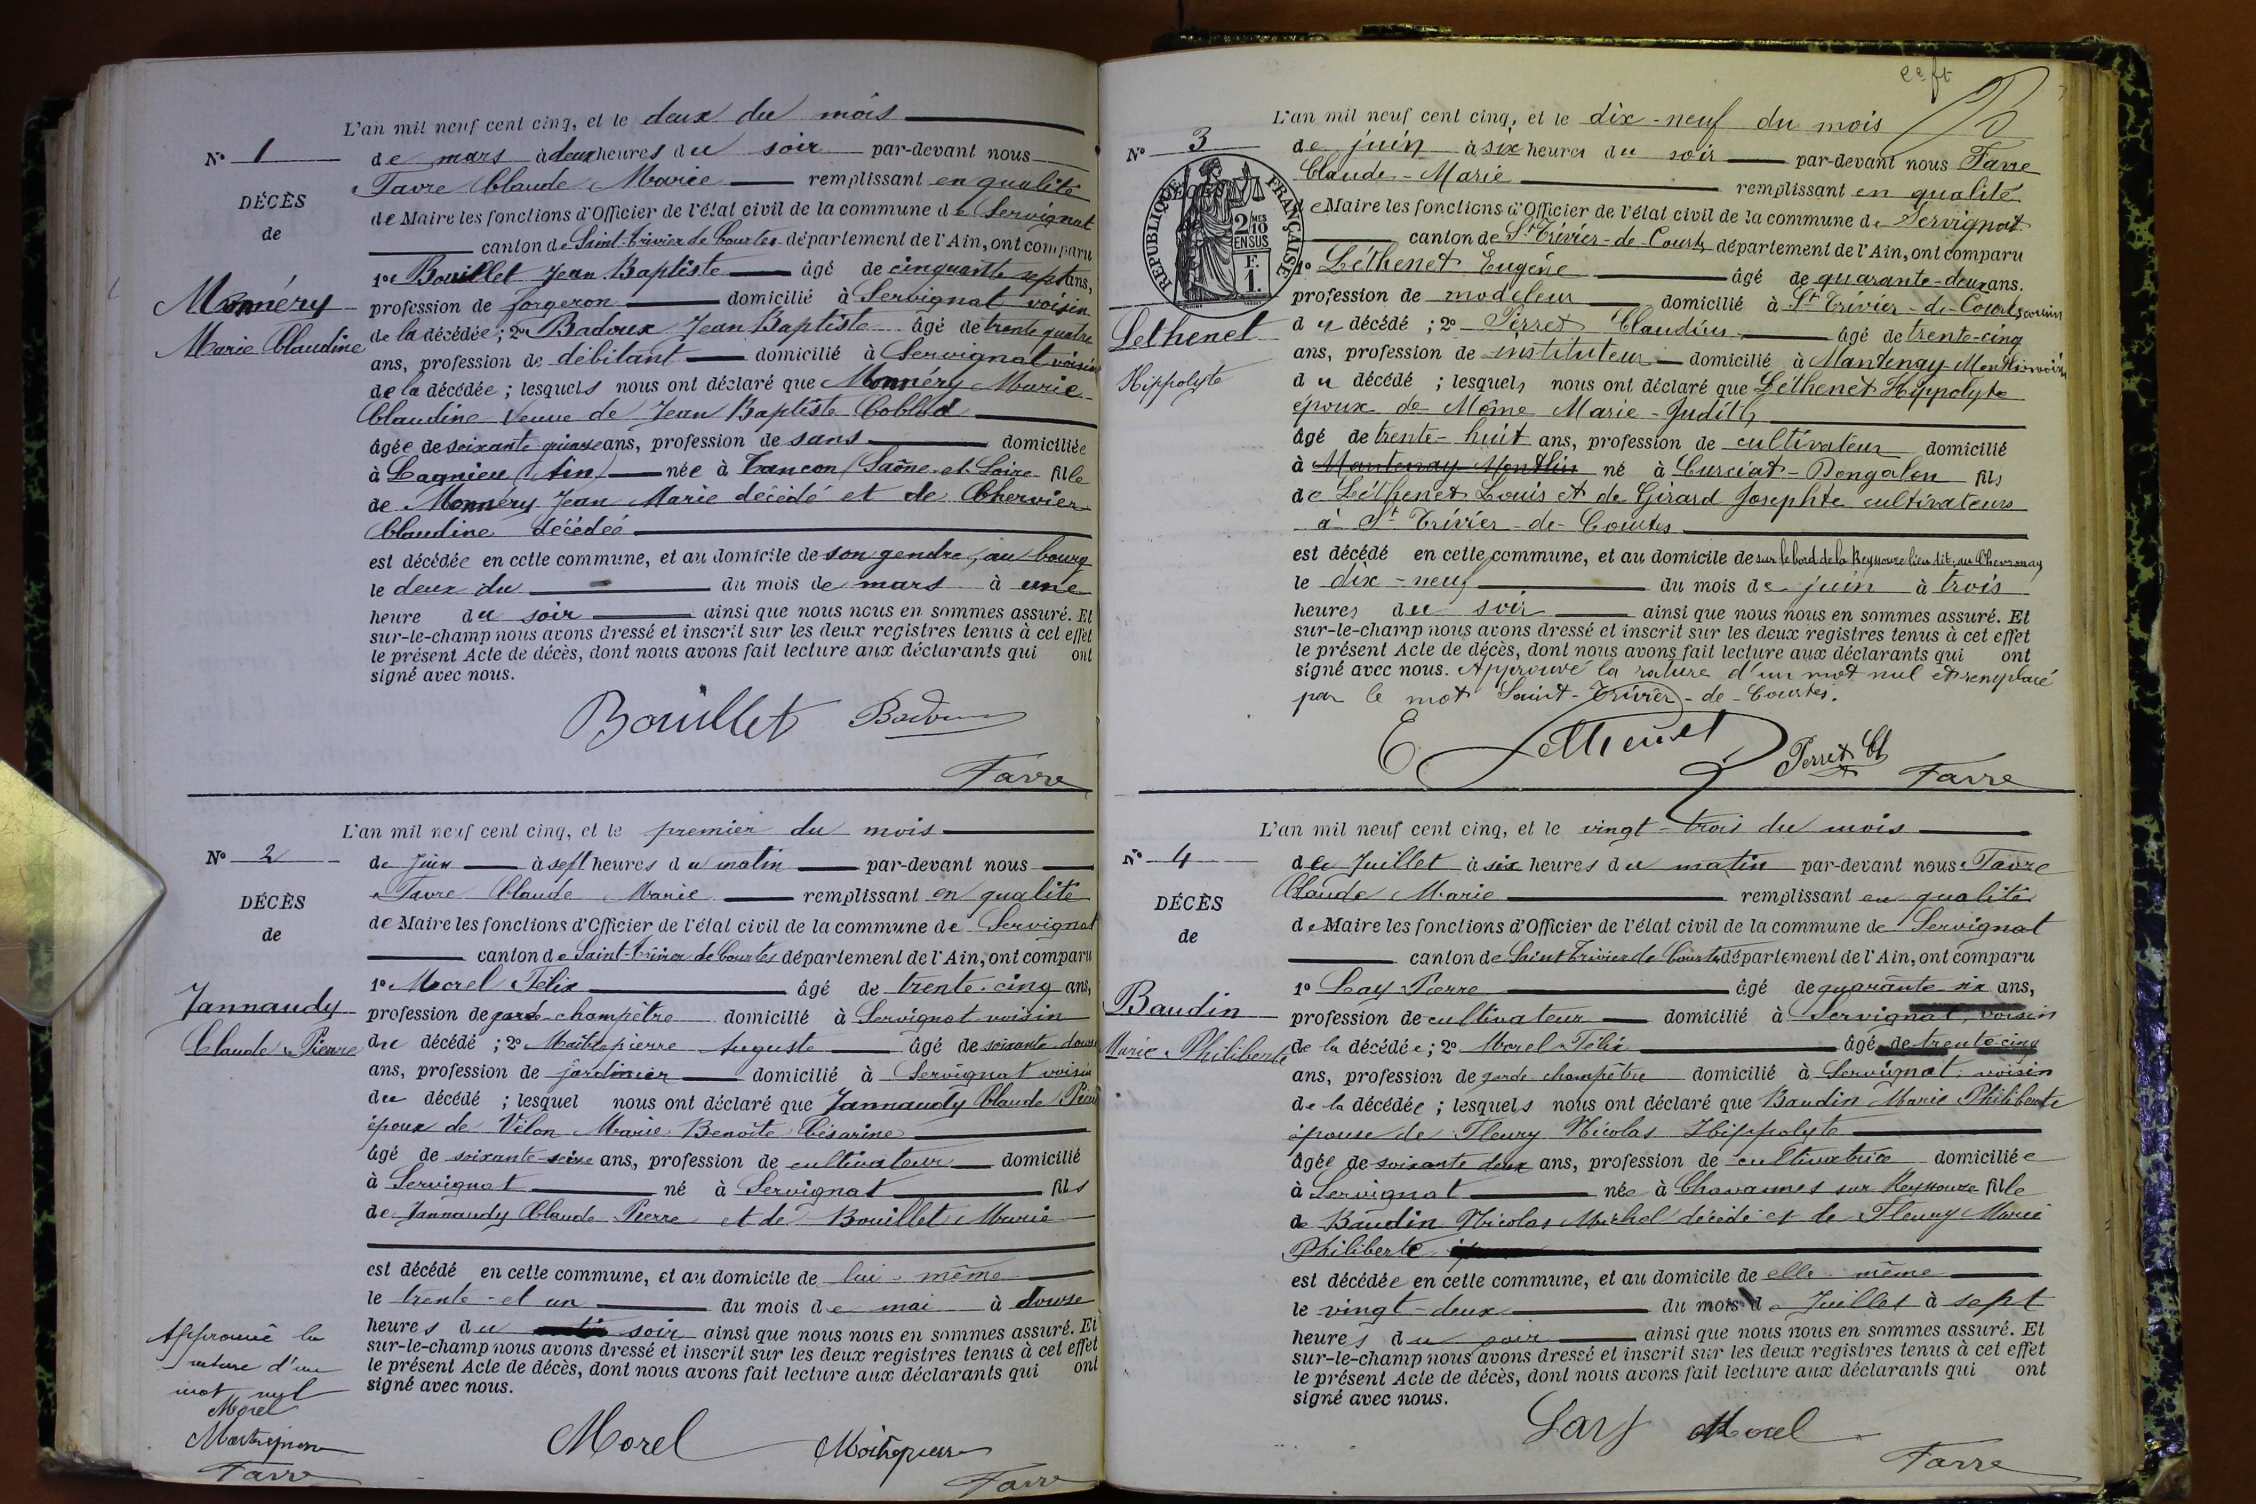 L'an mil neuf cent cinq, et le deux du mois
N° 1
de mars à deux heures du soir par-devant nous
Favre Claude Marie remplissant en qualité
DÉCÈS
de Maire les fonctions d'Officier de l'état civil de la commune de Servignat
de
canton de Saint-Trivier de Courtes département de l'Ain, ont comparu
1° Bouillet Jean Baptiste âgé de cinquante sept ans,
Monnéry
profession de forgeron domicilié à Servignat voisin
Marie Claudine
de la décédée ; 2° Badoux Jean Baptiste âgé de trente quatre
ans, profession de débitant domicilié à Servignat voisin
de la décédée ; lesquels nous ont déclaré que Monnéry Marie
Claudine Veuve de Jean Baptiste
âgée de soixante quinze ans, profession de sans domiciliée
à Lagnieu (Ain) née à Tancon (Saône-et-Loire fille
de Monnéry Jean Marie décédé et de Chervier
Claudine décédée
est décédée en cette commune, et au domicile de son gendre, au bourg
le deux du du mois de mars à une
heure du soir ainsi que nous nous en sommes assuré. Et
sur-le-champ nous avons dressé et inscrit sur les deux registres tenus à cet effet
le présent Acte de décès, dont nous avons fait lecture aux déclarants qui ont
signé avec nous.
Bouillet Badoux
Favre
L'an mil neuf cent cinq, et le premier du mois
N° 2
de Juin à sept heures du matin par-devant nous
Favre Claude Marie remplissant en qualité
DÉCÈS
de Maire les fonctions d'Officier de l'état civil de la commune de Servignat
de
canton de Saint-Trivier de Courtes département de l'Ain, ont comparu
1° Morel Félix âgé de trente-cinq ans,
Jannaudy
profession de garde-champêtre domicilié à Servignat voisin
Claude Pierre
du décédé ; 2° Maîtrepierre Auguste âgé de soixante douze
ans, profession de jardinier domicilié à Servignat voisin
du décédé ; lesquel nous ont déclaré que Jannaudy Claude Pierre
époux de Vélon Marie Benoîte Césarine
âgé de soixante-seize ans, profession de cultivateur domicilié
à Servignat né à Servignat fils
de Jannaudy Claude Pierre et de Bouillet Marie
est décédé en cette commune, et au domicile de lui-même
le trente-et un du mois de mai à douze
heures du soir ainsi que nous nous en sommes assuré. Et
sur-le-champ nous avons dressé et inscrit sur les deux registres tenus à cet effet
le présent Acte de décès, dont nous avons fait lecture aux déclarants qui ont
signé avec nous.
Approuvé la
rature d'un
mot nul
Morel
Maitrepierre
Favre
Morel Maitrepierre
Favre
L'an mil neuf cent cinq, et le dix-neuf du mois
N° 3
de juin à six heures du soir par-devant nous Favre
Claude-Marie remplissant en qualité
de Maire les fonctions d'Officier de l'état civil de la commune de Servignat
canton de St Trivier-de-Courtes département de l'Ain, ont comparu
RÉPUBLIQUE FRANÇAISE
2/10 EN SUS
F. 1.
1° Léthenet Eugène âgé de quarante-deux ans.
profession de modeleur domicilié à St Trivier-de-Courtes, cousin
Lethenet
du décédé ; 2° Perret Claudius âgé de trente-cinq
ans, profession de instituteur domicilié à Mantenay Montlin voisin
Hippolyte
du décédé ; lesquels nous ont déclaré que Léthenet Hippolyte
époux de Môme Marie-Judith
âgé de trente-huit ans, profession de cultivateur domicilié
à Mantenay Montlin né à Curciat-Dongalon fils
de Léthenet Louis et de Girard Josephte cultivateurs
à St Trivier-de-Courtes
est décédé en cette commune, et au domicile de sur le bord de la Reyssouze lieu dit, au Chevronay
le dix-neuf du mois de juin à trois
heures du soir ainsi que nous nous en sommes assuré. Et
sur-le-champ nous avons dressé et inscrit sur les deux registres tenus à cet effet
le présent Acte de décès, dont nous avons fait lecture aux déclarants qui ont
signé avec nous. Approuvé la rature d'un mot nul et remplacé
par le mot Saint-Trivier-de-Courtes.
E Lethenet Perret Cl Favre
L'an mil neuf cent cinq, et le vingt-trois du mois
N° 4
de Juillet à six heures du matin par-devant nous Favre
Claude Marie remplissant en qualité
DÉCÈS
de Maire les fonctions d'Officier de l'état civil de la commune de Servignat
de
canton de Saint Trivier de Courtes département de l'Ain, ont comparu
1° Lay Pierre âgé de quarante six ans,
Baudin
profession de cultivateur domicilié à Servignat, voisin
Marie Philiberte
de la décédée ; 2° Morel Félix âgé de trente cinq
ans, profession de garde champêtre domicilié à Servignat, voisin
de la décédée ; lesquels nous ont déclaré que Baudin Marie Philiberte
épouse de Fleury Nicolas Hippolyte
âgée de soixante deux ans, profession de cultivatrice domiciliée
à Servignat née à Chavannes sur Reyssouze fille
de Baudin Nicolas Michel décédé et de Fleury Marie
Philiberte
est décédée en cette commune, et au domicile de elle-même
le vingt-deux du mois de Juillet à sept
heures du soir ainsi que nous nous en sommes assuré. Et
sur-le-champ nous avons dressé et inscrit sur les deux registres tenus à cet effet
le présent Acte de décès, dont nous avons fait lecture aux déclarants qui ont
signé avec nous.
Lay Morel
Favre